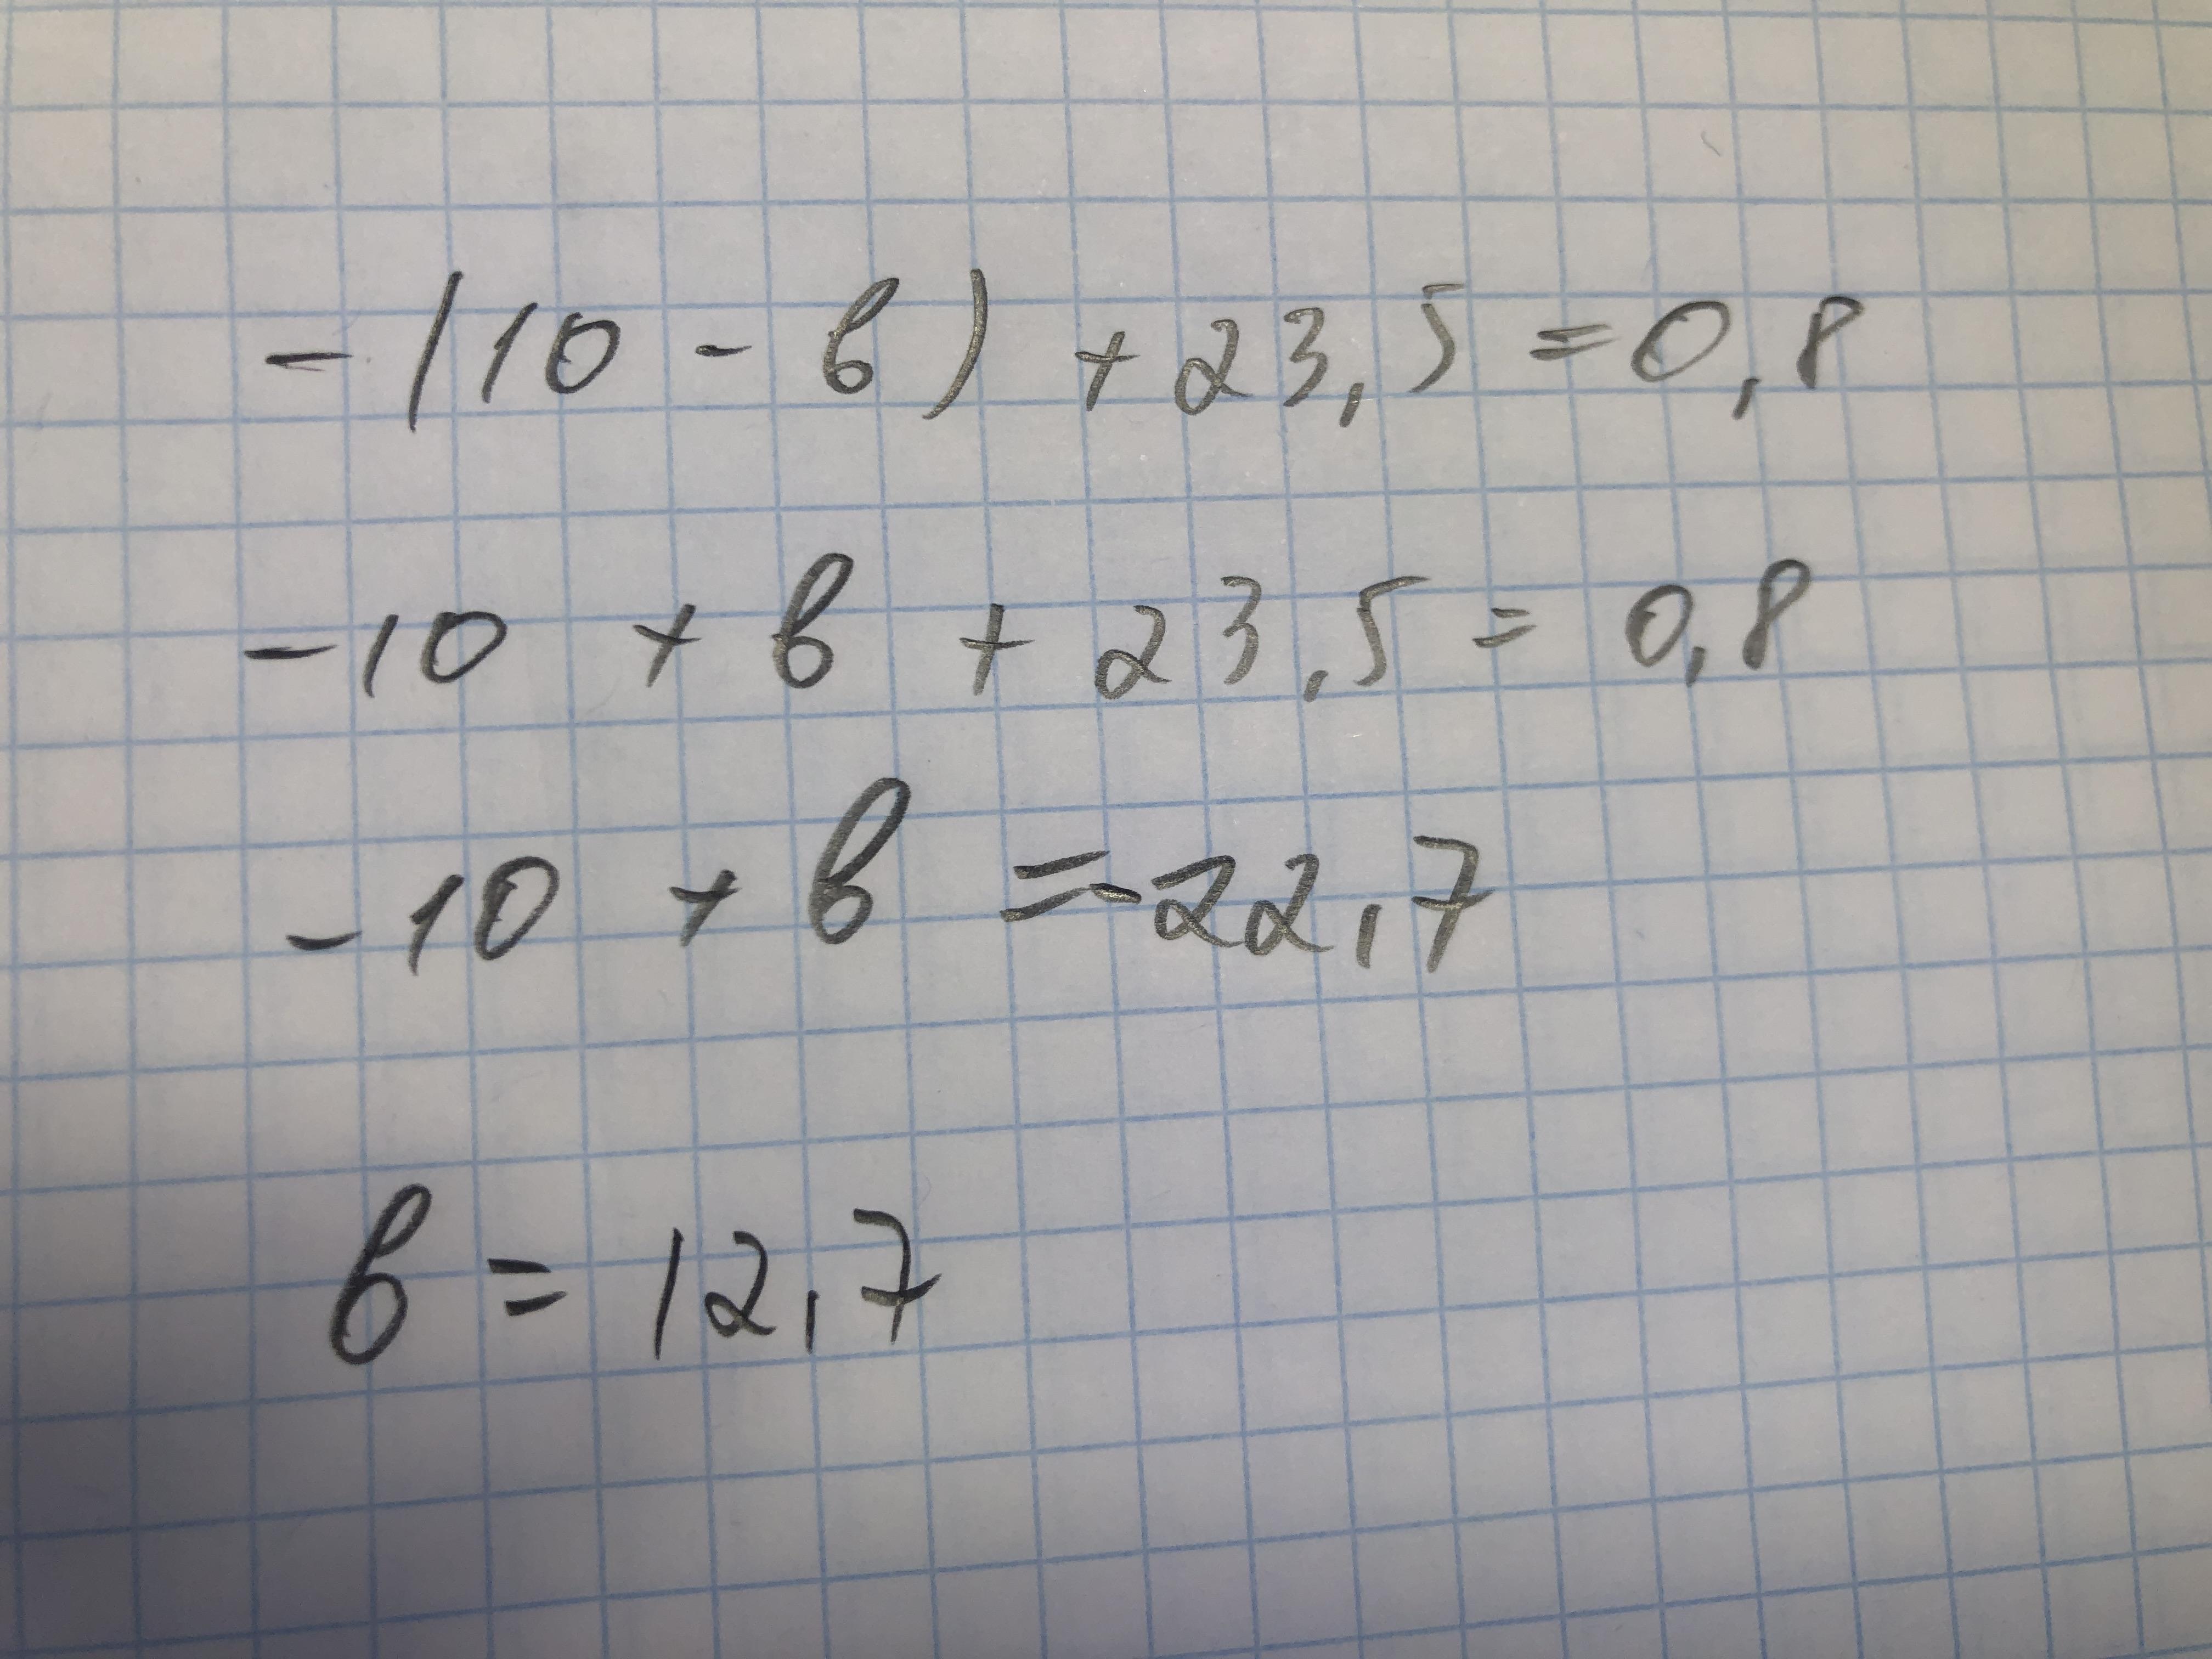 -(10 - в) + 23,5 = 0,8
-10 + в + 23,5 = 0,8
-10 + в = -22,7
в = 12,7